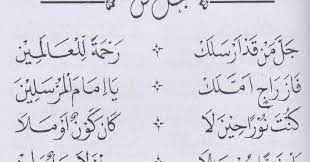 جَلَّ مَنْ قَدْ اَرْسَلَكْ ÷ رَحْمَةً لِلْعَالَمِيْنَ
فَازَ رَاجٍ اَمَّلَكْ ÷ يَا اِمَامَ الْمُرْسَلِيْنَ
كُنْتَ نُوْرًا حِيْنَ لَا ÷ كَانَ كَوْنٌ اَوْ مَلَا